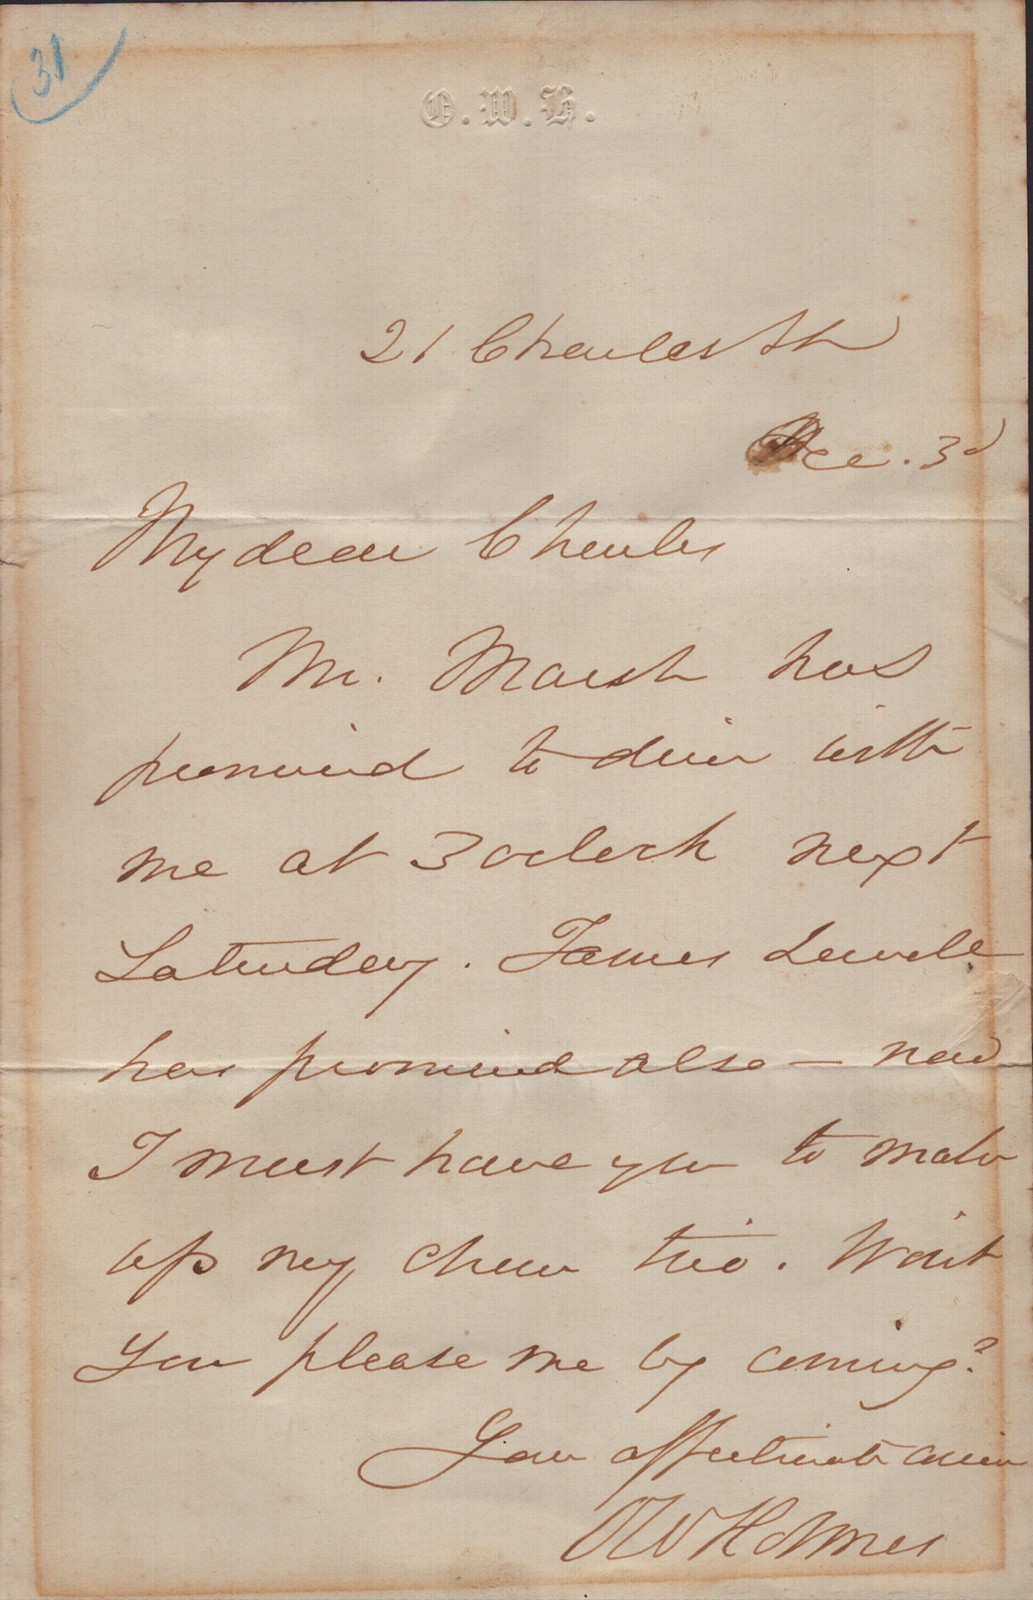 31
O. W. H.
21 Charles St
Dec. 3d
My dear Charles
Mr. Marsh has
promised to dine with
me at 3 oclock next
Saturday. James Lowell
has promised also — now
I must have you to make
up my trio. Wont
you please me by coming?
Your affectionate cousin
OW Holmes